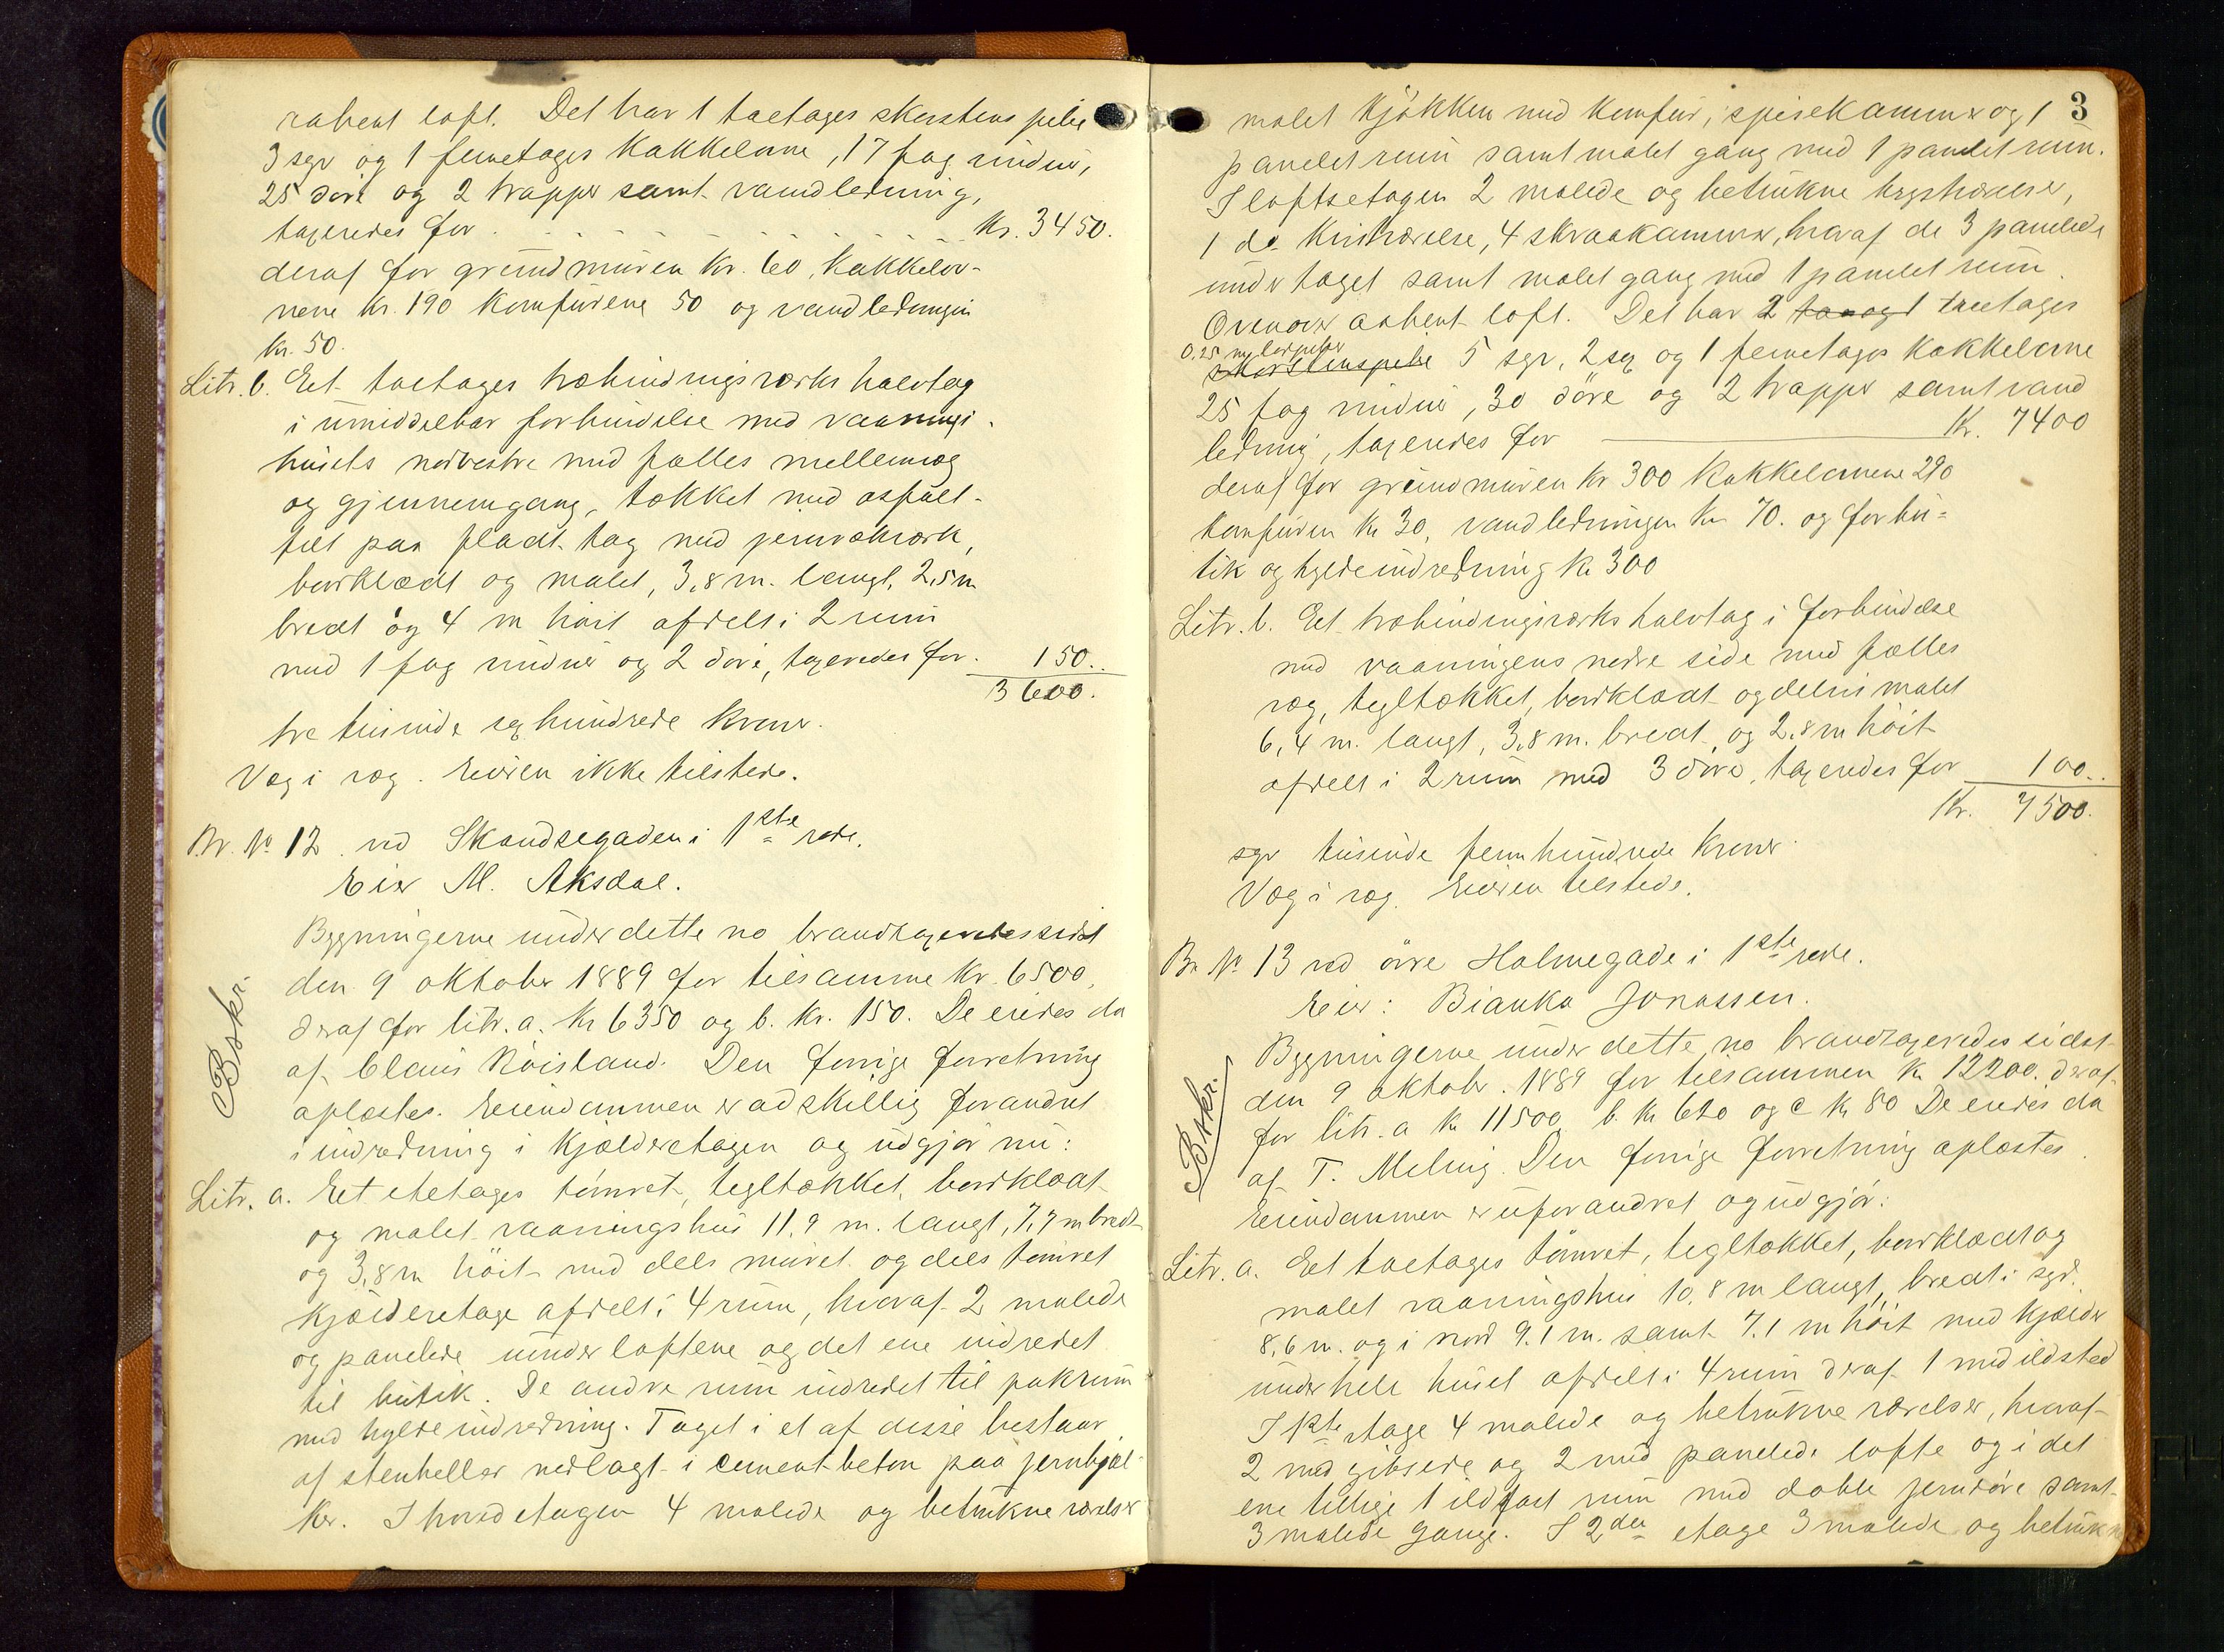 rabent loft. Det har 1 toetages skorstens pibe
3 segs og 1 femetages Kakkelovne, 17 fag vinduer,
25 döre og 2 trapper samt vandledning,
taxeredes for . . . . . . . . . . Kr. 3450.
deraf for grundmuren Kr. 60, Kakkelov-
nene kr. 190 Komfurene 50 og vandledningen
kr. 50.
Litr. b. Eet toetages træbindingsværks halvtag
i umiddelbar forbindelse med vaanings-
husets nordvestre med fælles mellemvæg
og gjennemgang, tækket med asfalt-
filt paa fladt tag med jernrækværk,
bordklædt og malet, 3,8 m. langt, 2,5 m
bredt og 4 m höit afdelt i 2 rum
med 1 fag vinduer og 2 döre, taxeredes for. 150..
3600.
tre tusinde sex hundrede kroner.
Væg i væg. Eieren ikke tilstede.
Br. No 12. ved Skandsegaden i 1ste rode.
Eier M. Aksdal.
Bskr.
Bygningerne under dette no brandtaxeredes sidst
den 9 oktober 1889 for tilsamme Kr. 6500,
deraf for litr. a. Kr 6350 og b. Kr. 150. De eiedes da
af Claus Röisland. Den forrige forretning
oplæstes. Eiendommen er adskillig forandret
i indredning i Kjælderetagen og udgjör nu:
Litr. a. Eet etetages tömret, tegltækket, bordklædt
og malet vaaningshus 11,9 m. langt, 7,7 m bredt
og 3,8 m höit med dels muret og dels tömret
Kjælderetage afdelt i 4 rum, hvoraf 2 malede
og panelede under loftene og det ene indredet
til butik. De andre rum indredet til pakrum
med hyldeindredning. Taget i et af disse bestaar
af stenheller nedlagt i cementbeton paa jernbjæl-
ker. I hovedetagen 4 malede og betrukne værelser
3
malet Kjökken med Komfur, spisekammer og 1
panelet rum samt malet gang med 1 panelet rum.
I loftsetagen 2 malede og betrukne bygsværelser,
1 do Kvistværelse, 4 skraakammer, hvoraf de 3 panelede
under taget samt malet gang med 1 panelet rum.
Ovenover aabent loft. Det har 2 to og 1 treetages
0,25 m
skorstenspibe 5 segs, 2 seg og 1 femetages Kakkelovne
25 fag vinduer, 30 döre og 2 trapper samt vand
ledning, taxeredes for Kr. 7400
deraf for grundmuren Kr 300 Kakkelovnene 290
komfuren Kr 30, vandledningen Kr 70. og for bu-
tik og hyldeindredning Kr 300
Litr. b. Eet træbindingsværks halvtag i forbindelse
med vaaningens nordre side med fælles
væg, tegltækket, bordklædt og delvis malet
6,4 m. langt, 3,8 m. bredt og 2,8 m höit
afdelt i 2 rum med 3 döre, taxeredes for 100..
Kr. 7500.
syv tusinde fem hundrede Kroner.
Væg i væg. Eieren tilstede.
Br No 13 ved övre Holmegade i 1ste rode.
Eier: Bianka Jonassen.
Bskr.
Bygningerne under dette no brandtaxeredes sidst
den 9 oktober. 1889 for tilsammen Kr 12200. deraf
for litr. a Kr 11500 b. Kr 620 og c Kr 80 De eiedes da
af T. Meling. Den forrige forretning oplæstes.
Eiendommen er uforandret og udgjör:
Litr. a. Eet toetages tömret, tegltækket, bordklædt og
malet vaaningshus 10,8 m langt, bredt i syd.
8,6 m. og i nord 9.1 m. samt 7.1 m höit med Kjælder
under hele huset afdelt i 4 rum deraf 1 med ildsted
I 1ste etage 4 malede og betrukne værelser, hvoraf
2 med gibsede og 2 med panelede lofte og i det
ene tillige 1 ildfast rum med doble jerndöre samt
3 malede gange. I 2den etage 3 malede og betrukne